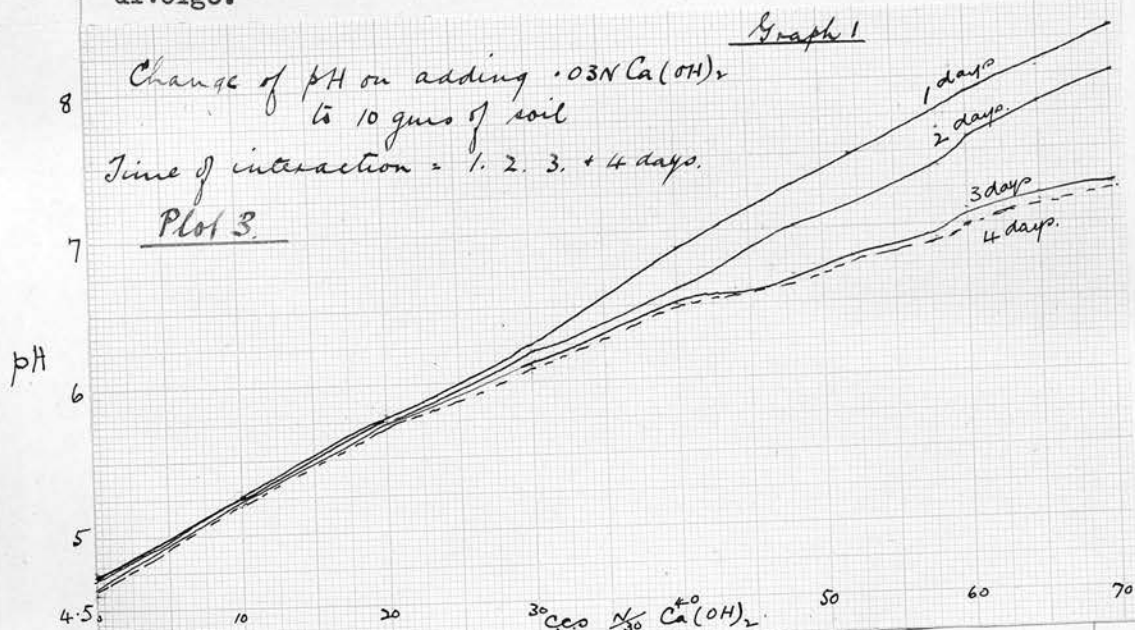 diverge.
Graph 1
Change of pH on adding .03N Ca(OH)₂
to 10 gms of soil
Time of interaction = 1. 2. 3. + 4 days.
Plot 3.
1 days
2 days.
3 days
4 days.
8
7
pH
6
5
4.5
0 10 20 30 40 50 60 70
ccs N/30 Ca(OH)₂.